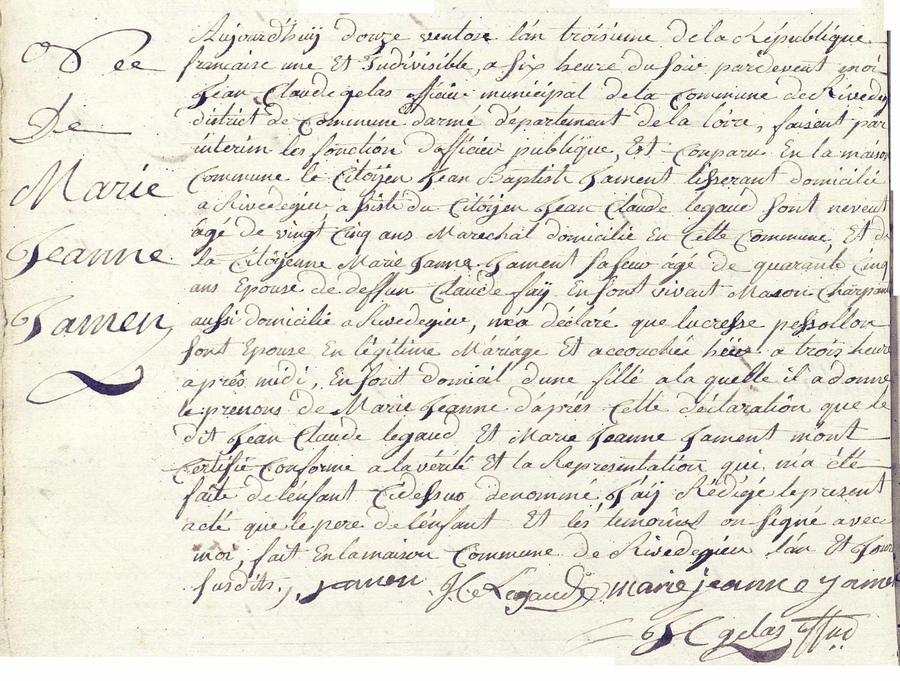 Nee
De
Marie
Jeanne
Jamen
Aujourd'huy douze ventose l'an troisieme de la République
francaise une Et Indivisible, a six heure du soir pardevent moi
Jean Claude gelas officier municipal de la Commune de Rivedegi
district de Commune d'armé département de la loire, faisent par
interim les fonction dofficier publique, Est Comparu En la maison
Commune le Citoÿen Jean Baptiste Jament tisserant domicilié
a Rivedegier assisté du Citoÿen Jean Claude legaud sont neveut
âgé de vingt Cinq ans Marechal domicilie En Cette Commune, Et de
la Citoÿenne Marie Janne Jament sa seur âgé de quarante Cinq
ans Epouse de deffun Claude faÿ En sont vivant Mason Charpant
aussi domicilié a Rivedegier, m'a déclaré que lucresse pessollon
sont Epouse En légitime Máriage Et accouchée hier a trois heure
aprês midi, En sont domicil d'une fillé a la quelle il a donné
le prenons de Marie Jeanne d'aprés Cette déclaration que le
dit Jean Claude legaud Et Marie Jeanne Jament m'ont
Certifié Conforme a la vérité Et la Représentation qui m'a été
faite de l'enfant Cidessus denommé J'aÿ Rédigé le present
acté que le pere de l'enfant Et lés temoins on signé avec
moi, fait En la maison Commune de Rivedegier l'an Et Jour
susdits, Jamen JC Legaud marie jeanne yamen
JC gelas offier